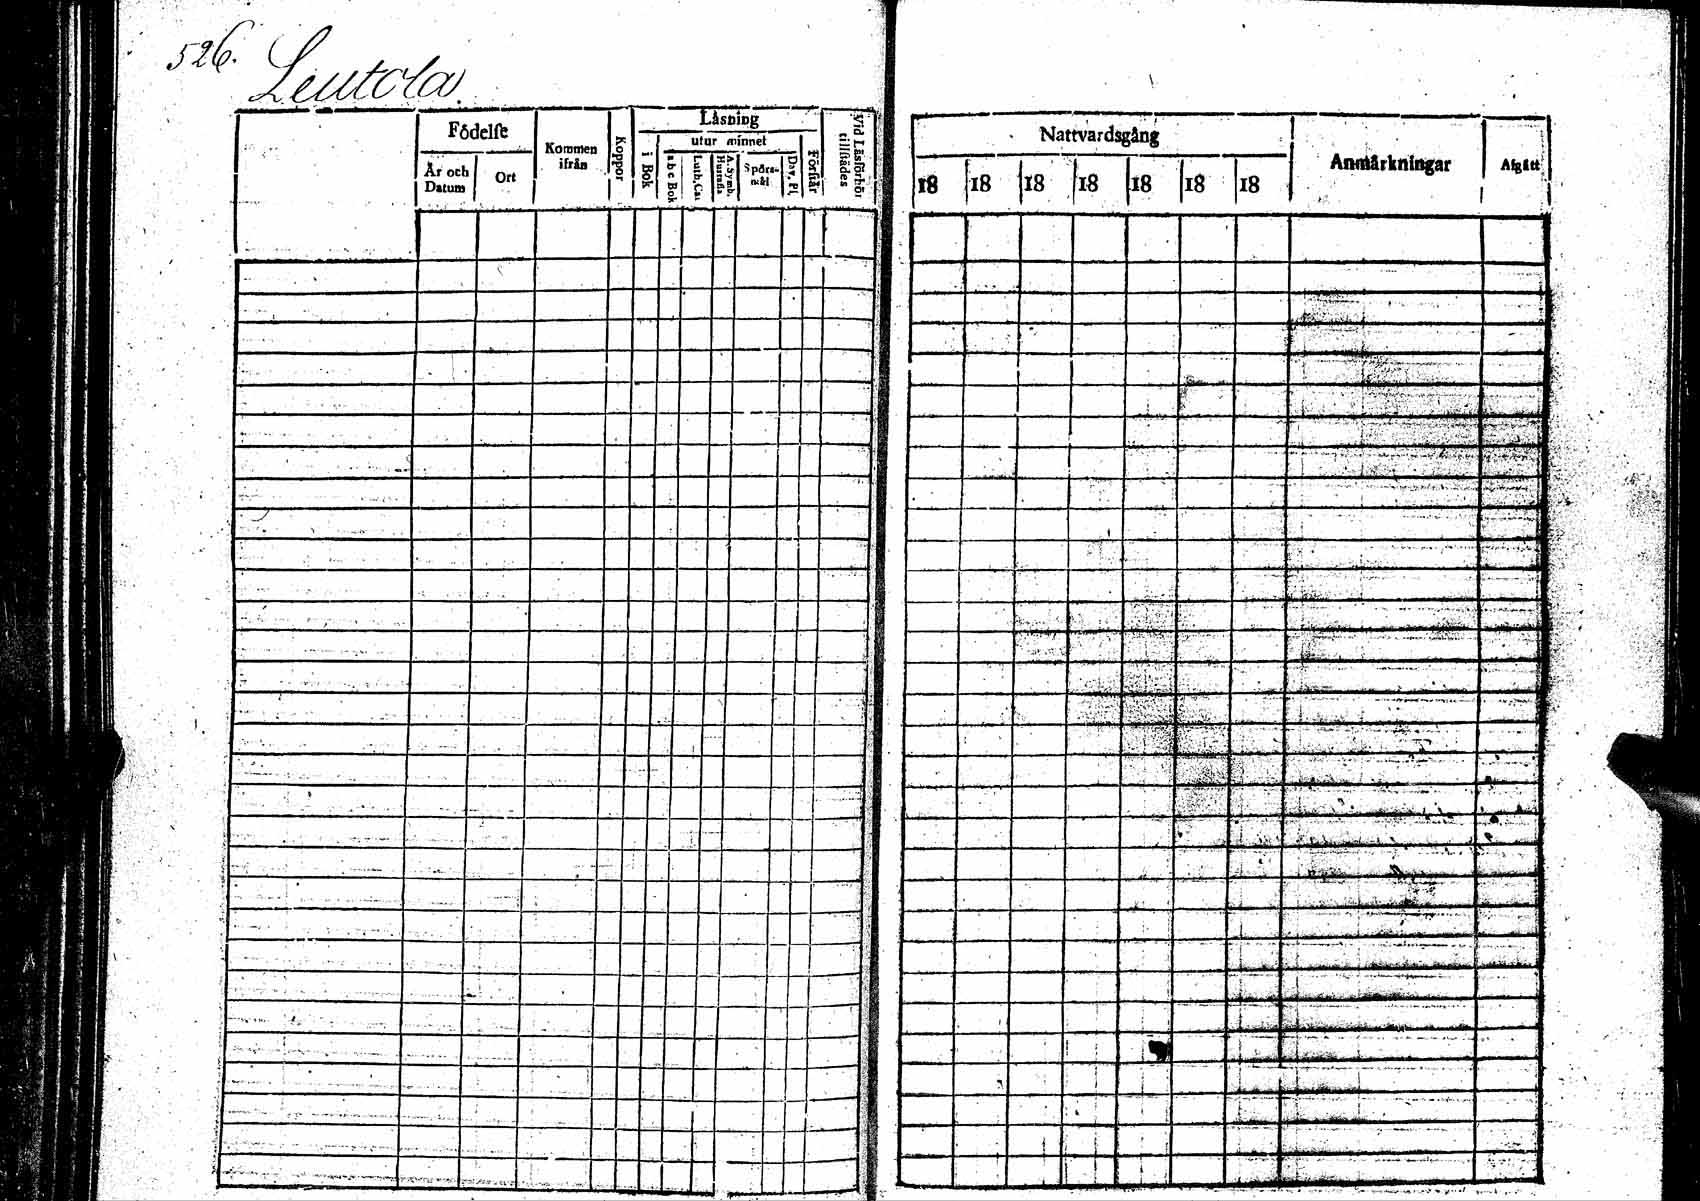 526.
Leutola
Födelse
År och Datum
Ort
Kommen ifrån
Koppor
Låsning
i Bok
utur minnet
a b c Bok
Luth. Cat.
A. Symb. Hustafla
Spörs-mål
Dav. Ps.
Förstår
Vid Läsförhör tillstädes
Nattvardsgång
18 18 18 18 18 18 18
Anmärkningar
Afgått